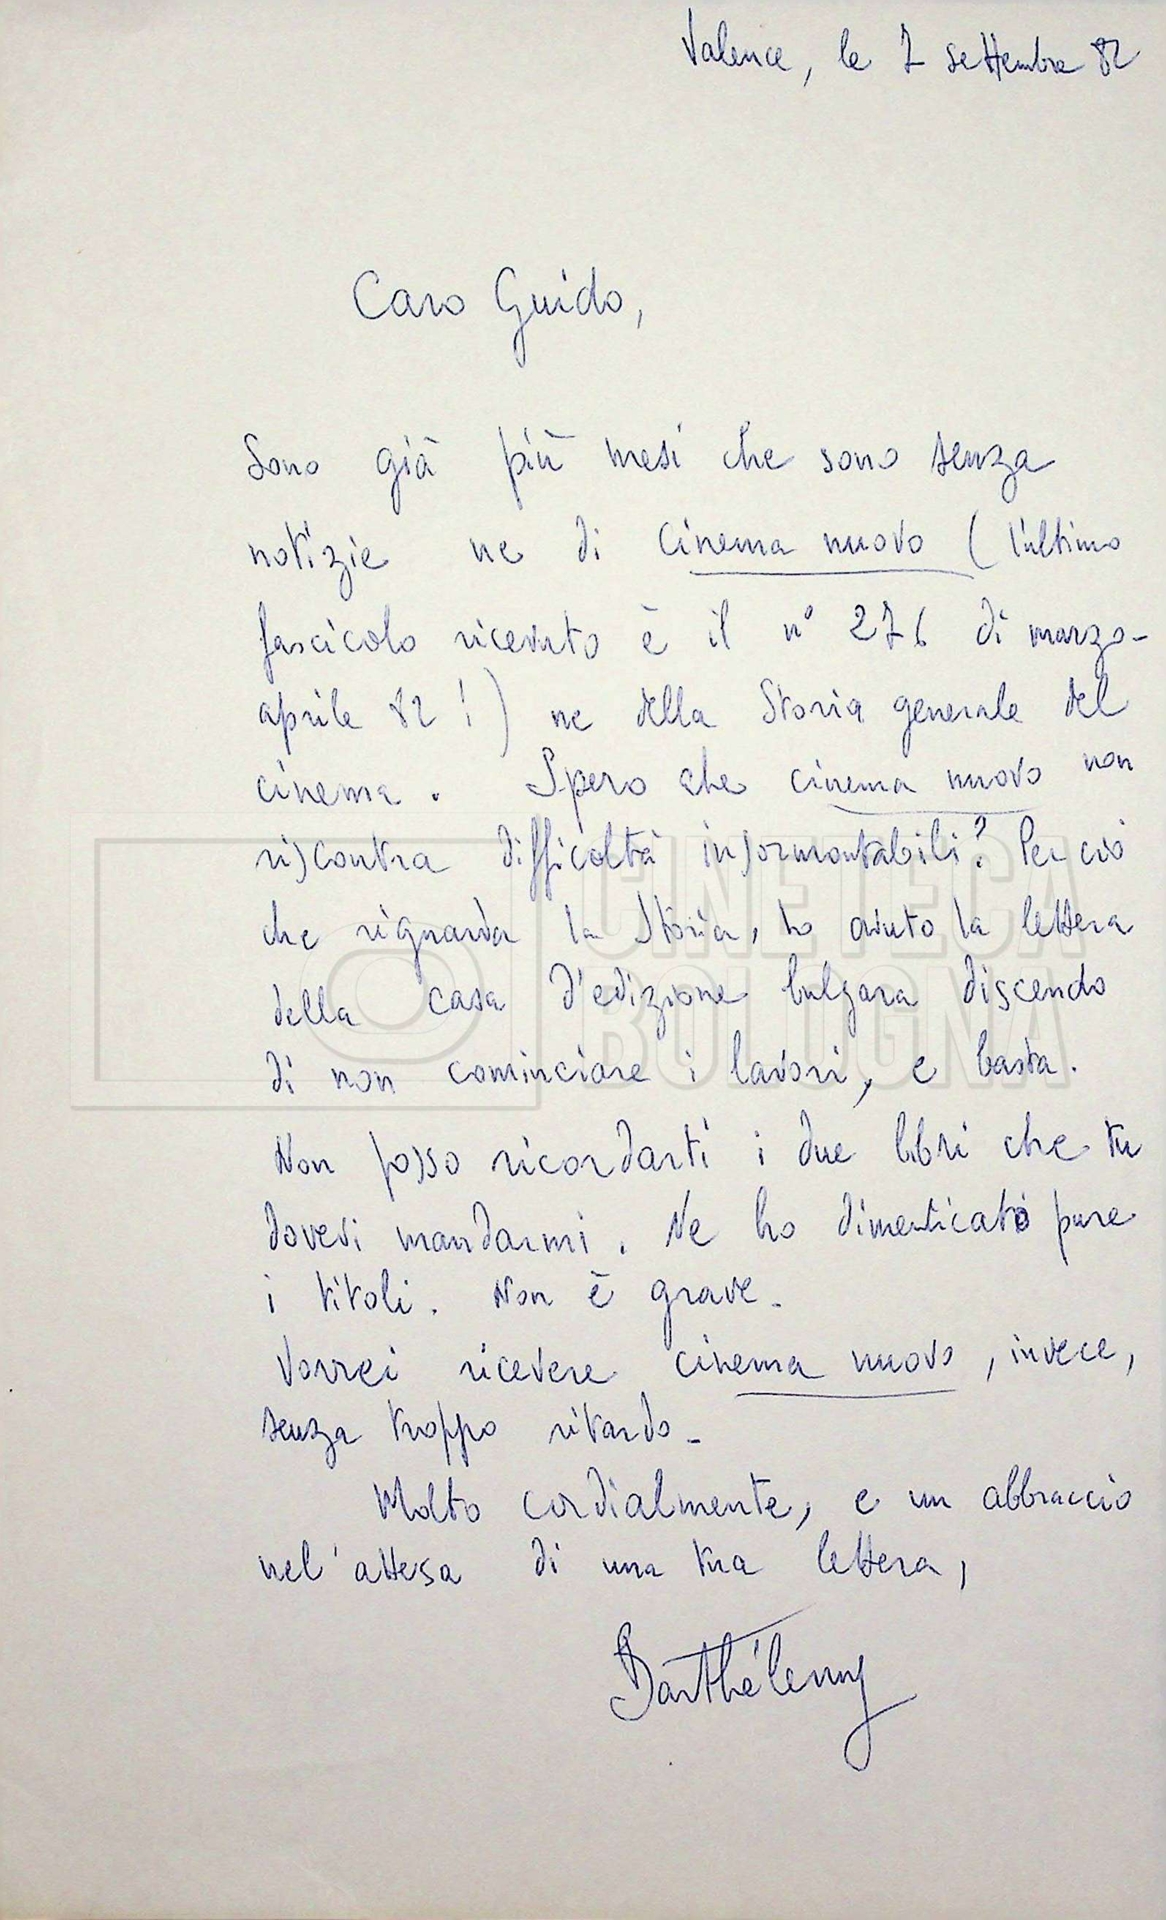 Valence, le 7 settembre 82
Caro Guido,
Sono già più mesi che sono senza
notizie ne di cinema nuovo (l'ultimo
fascicolo ricevuto è il n° 276 di marzo-
aprile 82!) ne della Storia generale del
cinema. Spero che cinema nuovo non
riscontra difficoltà insormontabili? Per ciò
che riguarda la Storia, ho avuto la lettera
della casa d'edizione bulgara discendo
di non cominciare i lavori, e basta.
Non posso ricordarti i due libri che tu
dovevi mandarmi. Ne ho dimenticato pure
i titoli. Non è grave.
Vorrei ricevere cinema nuovo, invece,
senza troppo ritardo.
Molto cordialmente, e un abbraccio
nel'attesa di una tua lettera,
Barthélemy
CINETECA
BOLOGNA